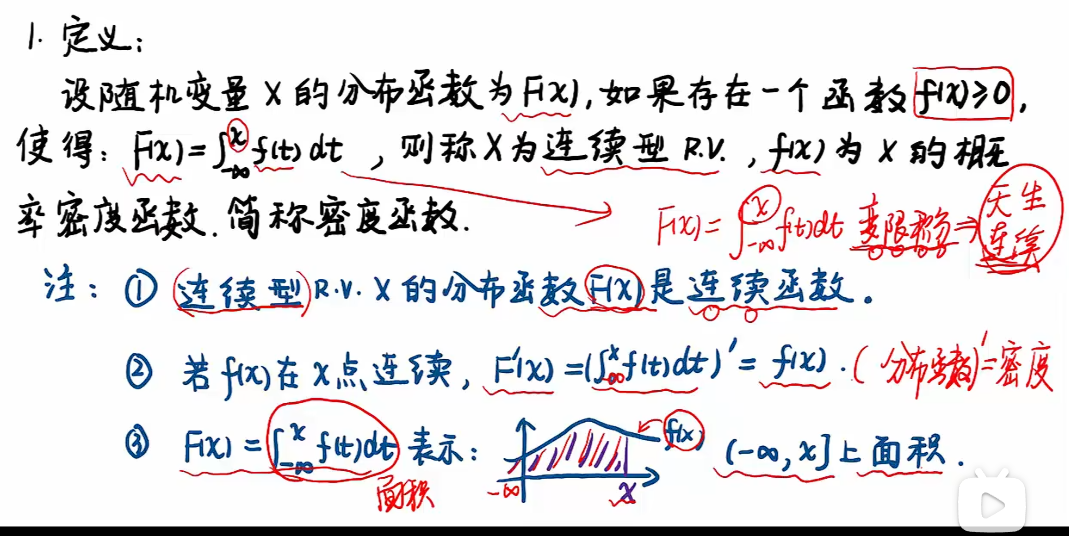 1. 定义：
设随机变量 X 的分布函数为 F(x), 如果存在一个函数 f(x)≥0,
使得: F(x)=∫_{-∞}^{x} f(t)dt , 则称X为连续型 R.V. , f(x) 为 X 的概
率密度函数. 简称密度函数.
F(x)=∫_{-∞}^{x} f(t)dt 变限积分⇒天生连续
注: ① (连续型) R.V. X 的分布函数 F(x) 是连续函数。
② 若 f(x) 在 x 点连续, F'(x)=(∫_{-∞}^{x} f(t)dt)'=f(x). (分布函数)'=密度
③ F(x)=∫_{-∞}^{x} f(t)dt 表示: f(x) (-∞, x] 上面积.
面积 -∞ x